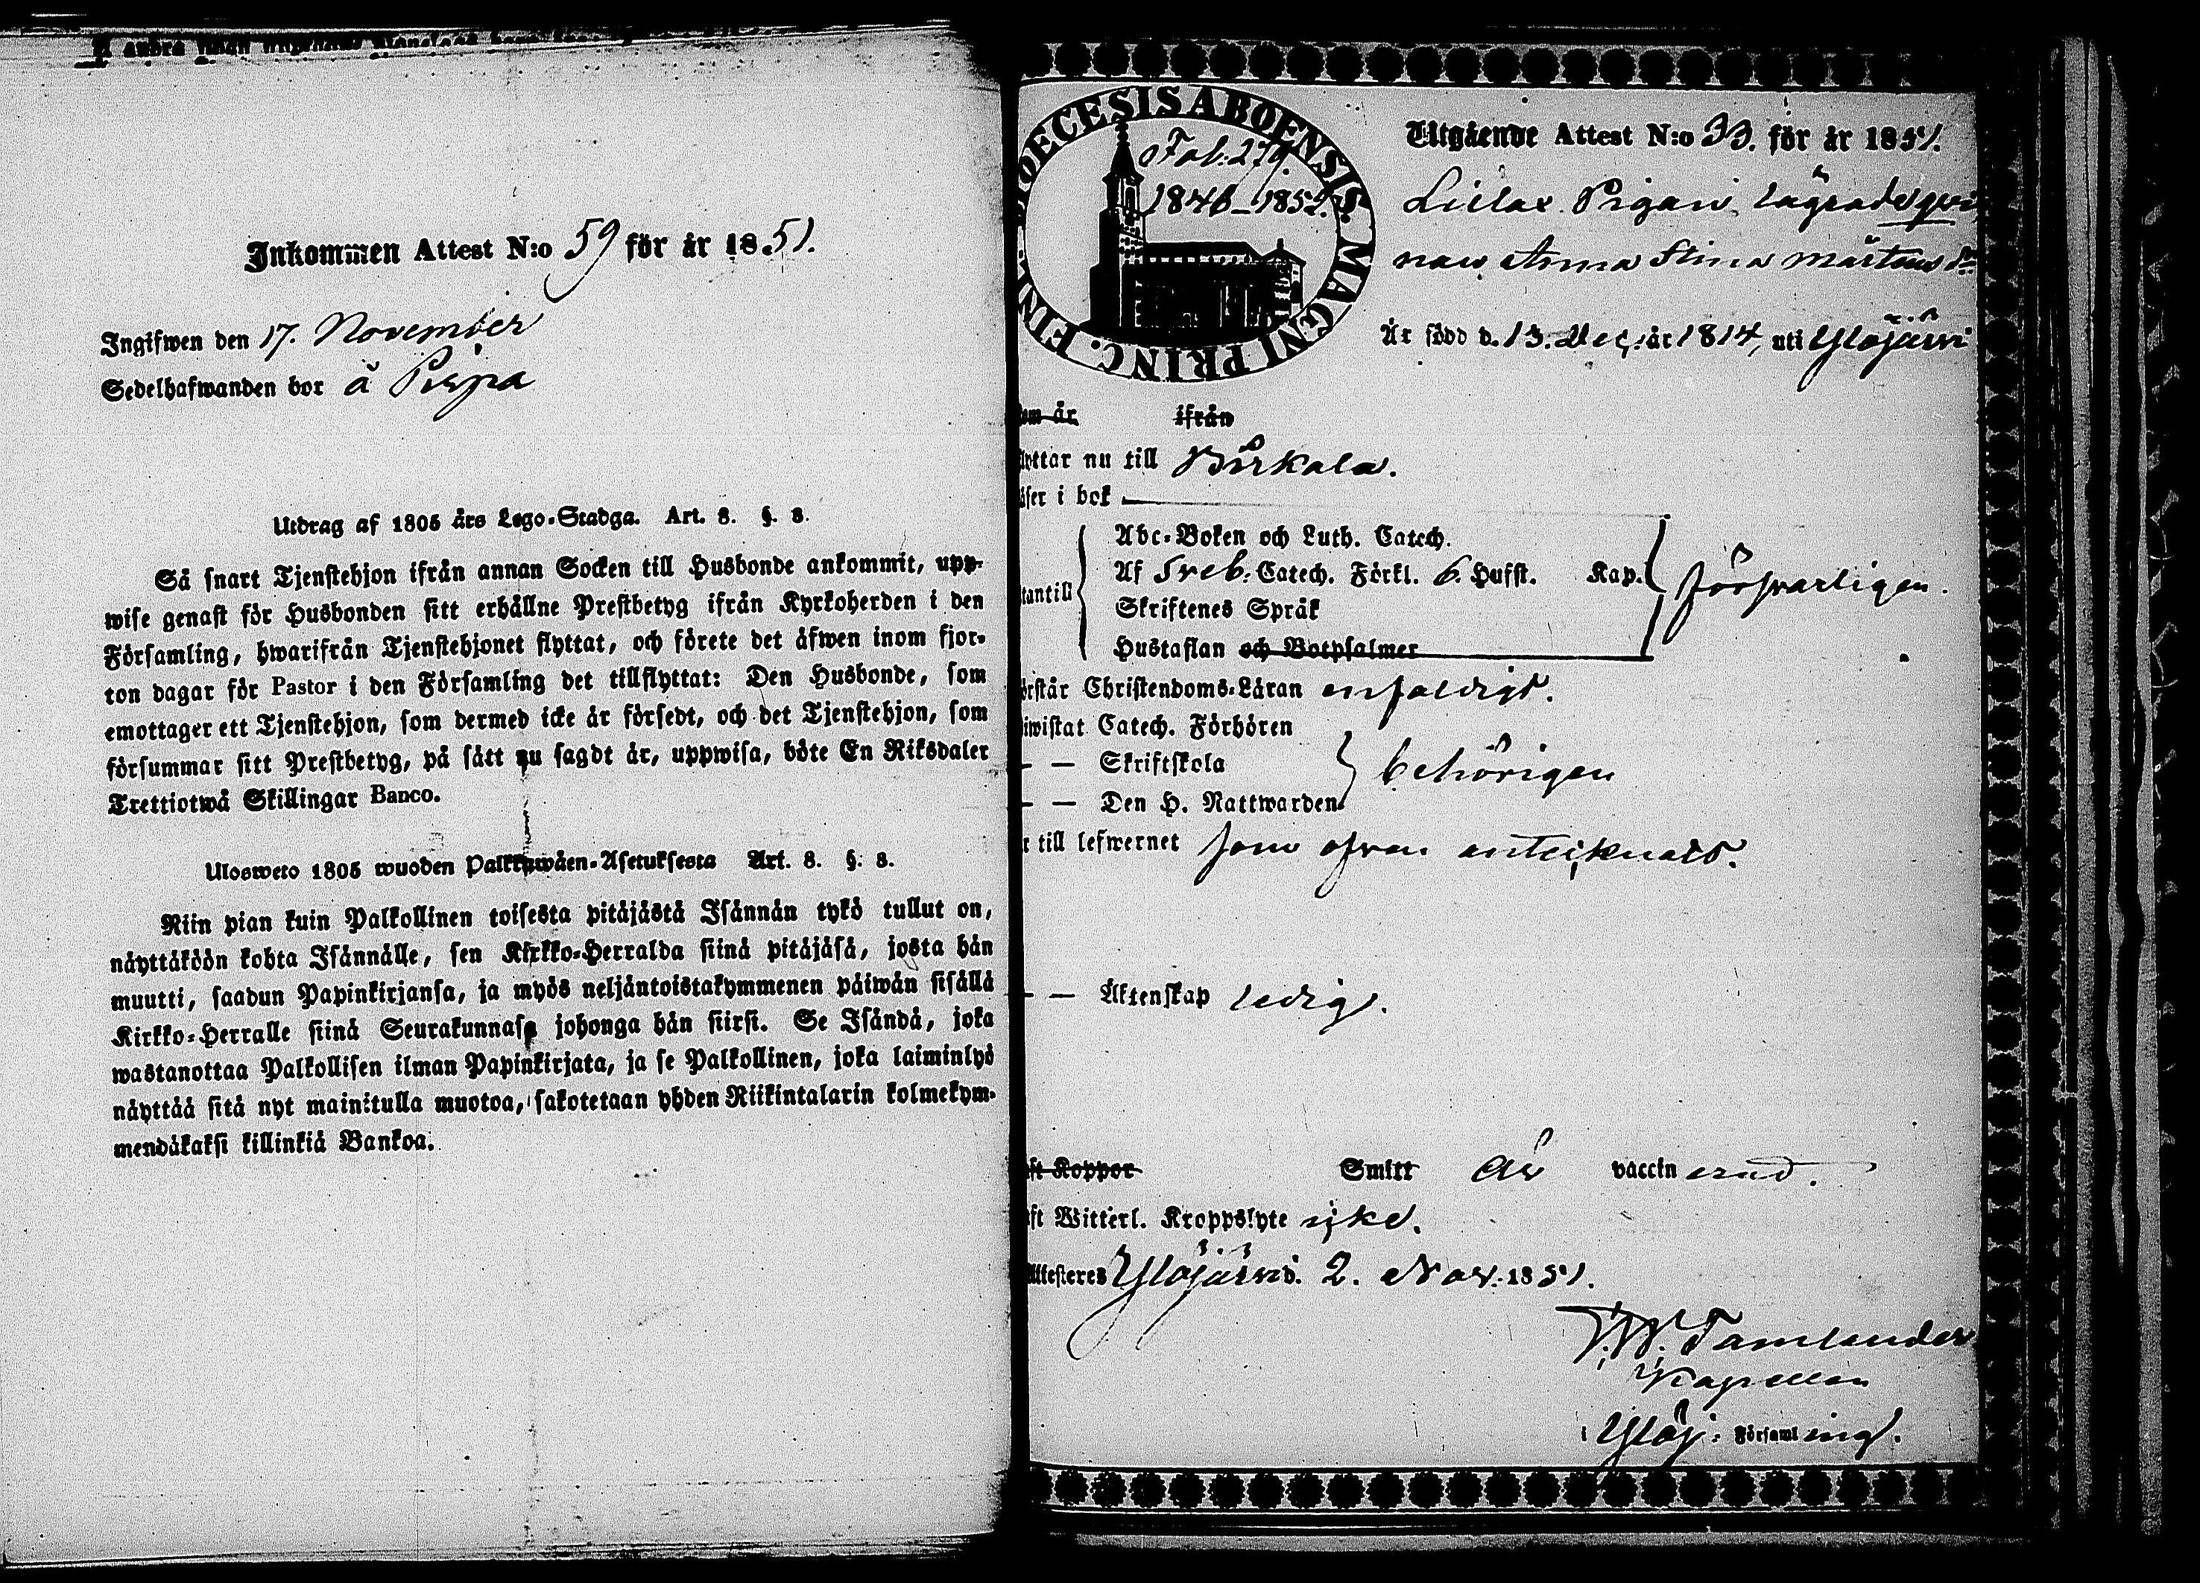 Inkommen Attest N:o 59 för år 1851.
Ingifwen den 17. November
Sedelhafwanden bor å Pispa
Utdrag af 1805 års Lego-Stadga. Art. 8. §. 8.
Så snart Tjenstehjon ifrån annan Socken till Husbonde ankommit, upp-
wise genast för Husbonden sitt erhållne Prestbetyg ifrån Kyrkoherden i den
Församling, hwarifrån Tjenstehjonet flyttat, och förete det äfwen inom fjor-
ton dagar för Pastor i den Församling det tillflyttat: Den Husbonde, som
emottager ett Tjenstehjon, som dermed icke är försedt, och det Tjenstehjon, som
försummar sitt Prestbetyg, på sätt nu sagdt är, uppwisa, böte En Riksdaler
Trettiotwå Skillingar Banco.
Ulosweto 1805 wuoden Palkkawäen-Asetuksesta Art. 8. §. 8.
Niin pian kuin Palkollinen toisesta pitäjästä Isännän tykö tullut on,
näyttäköön kohta Isännälle, sen Kirkko-Herralda siinä pitäjäsä, josta hän
muutti, saadun Papinkirjansa, ja myös neljäntoistakymmenen päiwän sisällä
Kirkko-Herralle siinä Seurakunnasa johonga hän siirsi. Se Isändä, joka
wastanottaa Palkollisen ilman Papinkirjata, ja se Palkollinen, joka laiminlyö
näyttää sitä nyt mainitulla muotoa, sakotetaan yhden Riikintalarin kolmekym-
mendäkaksi killinkiä Bankoa.
DIOECESIS ABOENSIS. MAGNI PRINC. FINL.
Fol. 279
1846-1852.
Utgående Attest N:o 33. för år 1851.
Pigan, lägrade qvin
nan Anna Stina Mårtens dr
Är född d. 13. Dec. år 1814, uti Ylöjärvi
om är ifrån
lyttar nu till Birkala.
äser i bok
Abc-Boken och Luth. Catech.
Af Sveb. Catech. Förkl. 6. Hufst. Kap.
tantill
Skriftenes Språk
försvarligen.
Hustaflan och Botpsalmer
örstår Christendoms-Läran enfaldigt.
iwistat Catech. Förhören
— — Skriftskola
behörigen
— — Den H. Nattwarden
r till lefwernet som ofvan antecknats.
— — Äktenskap ledig.
ft Koppor Smitt är vaccinerad.
ft Witterl. Kroppslyte icke.
Attesteres Ylöjärvi d. 2. Nov. 1851.
Tamlander
Kapellan
i Ylöj. Församling.